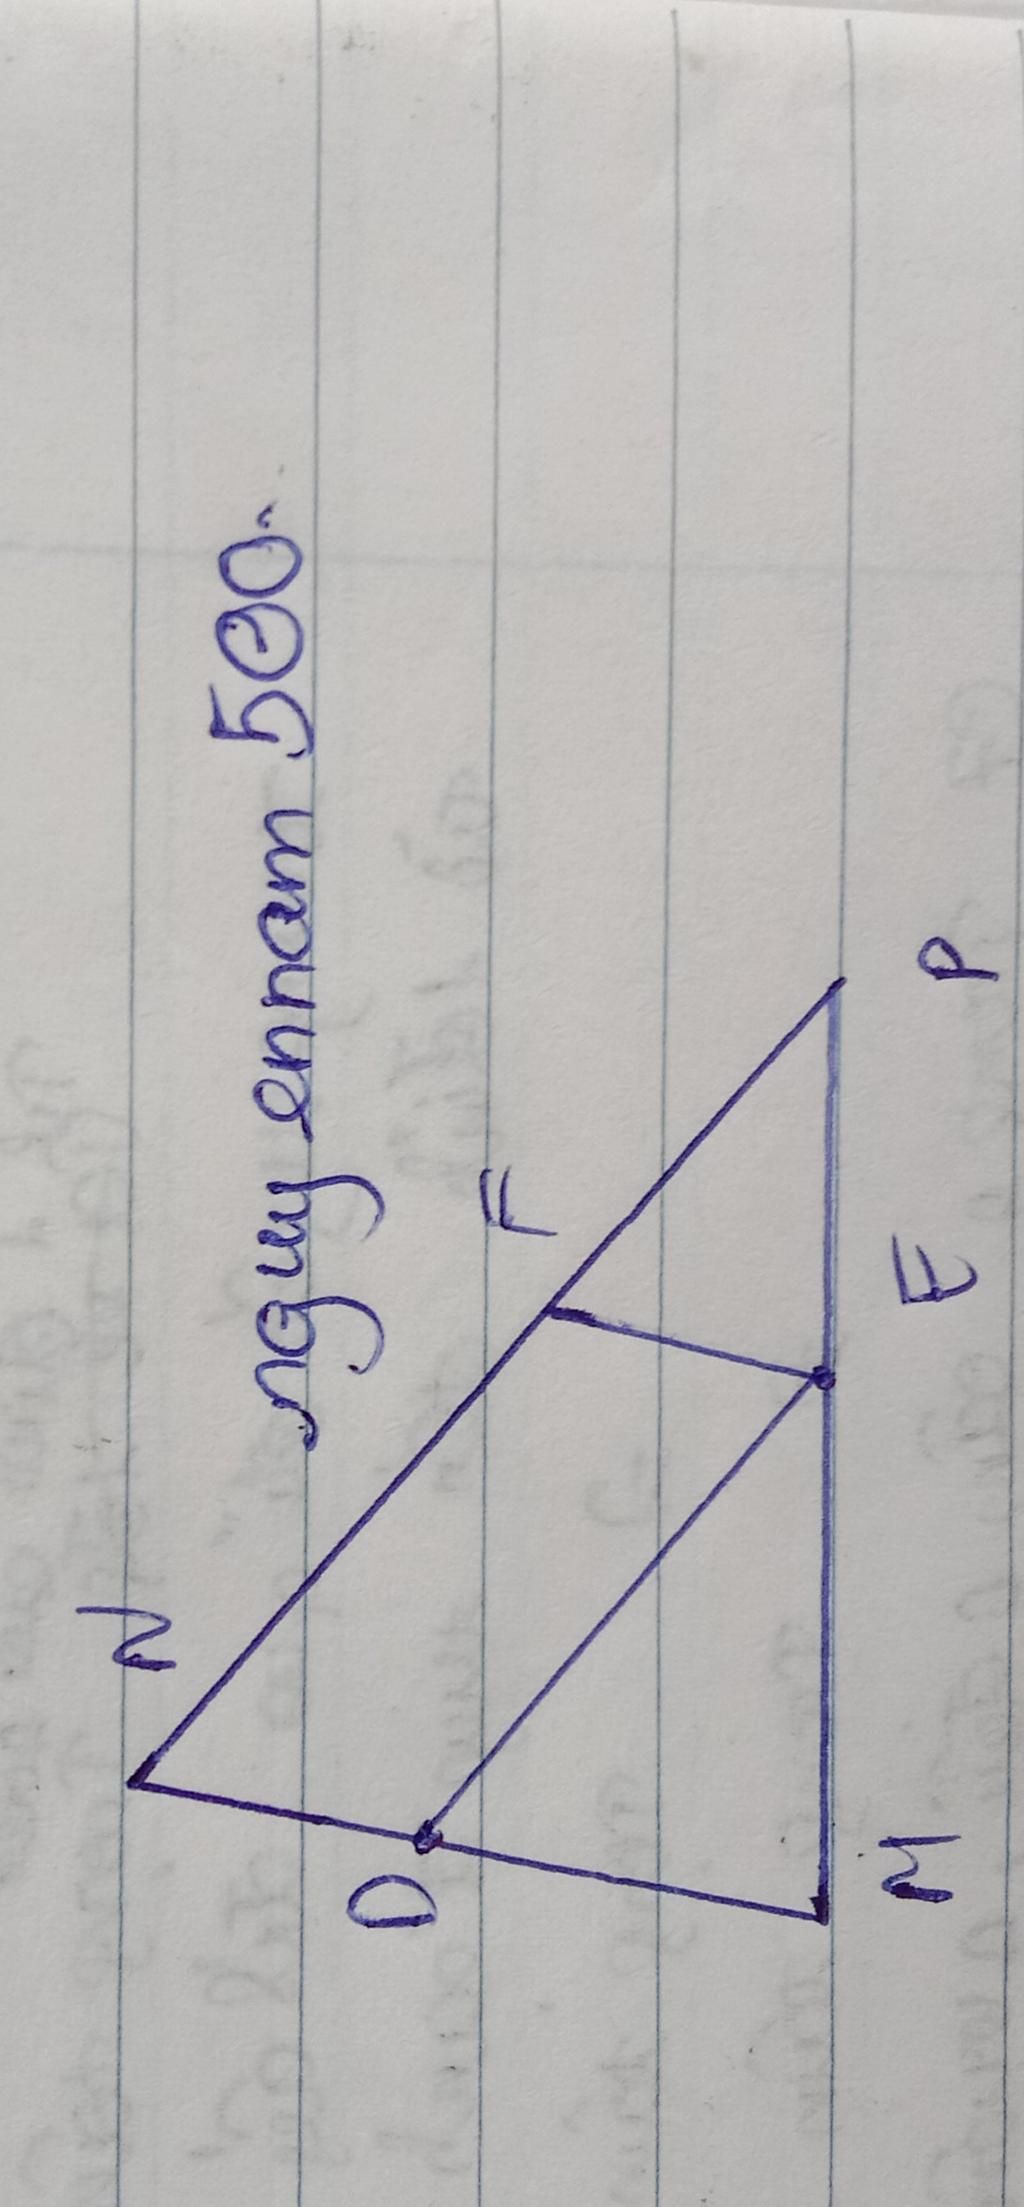 nguyennam 500.
N
F
D
M
E
P